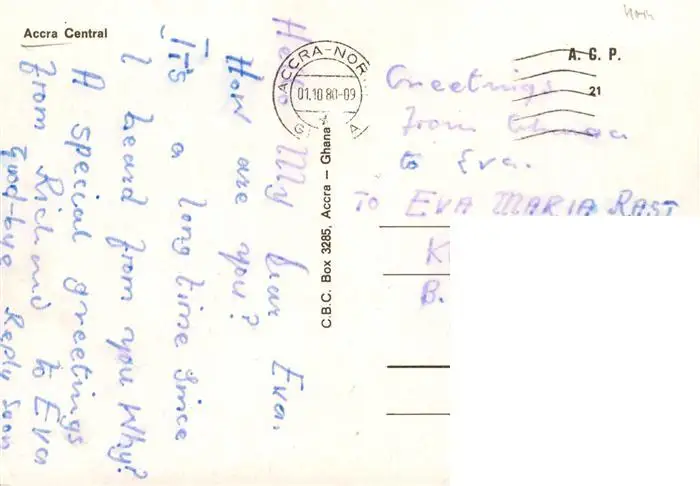 Accra Central
Hello My dear Eva.
How are you?
It's a long time since
I heard from you Why?
A special greetings
from Richmd to Eva
Good-bye Reply Soon
ACCRA-NOR
01.10 80-09
G A
C.B.C. Box 3285, Accra – Ghana
A. G. P.
21
Greetings
from Ghana
to Eva.
TO EVA MARIA RAST
K
B.